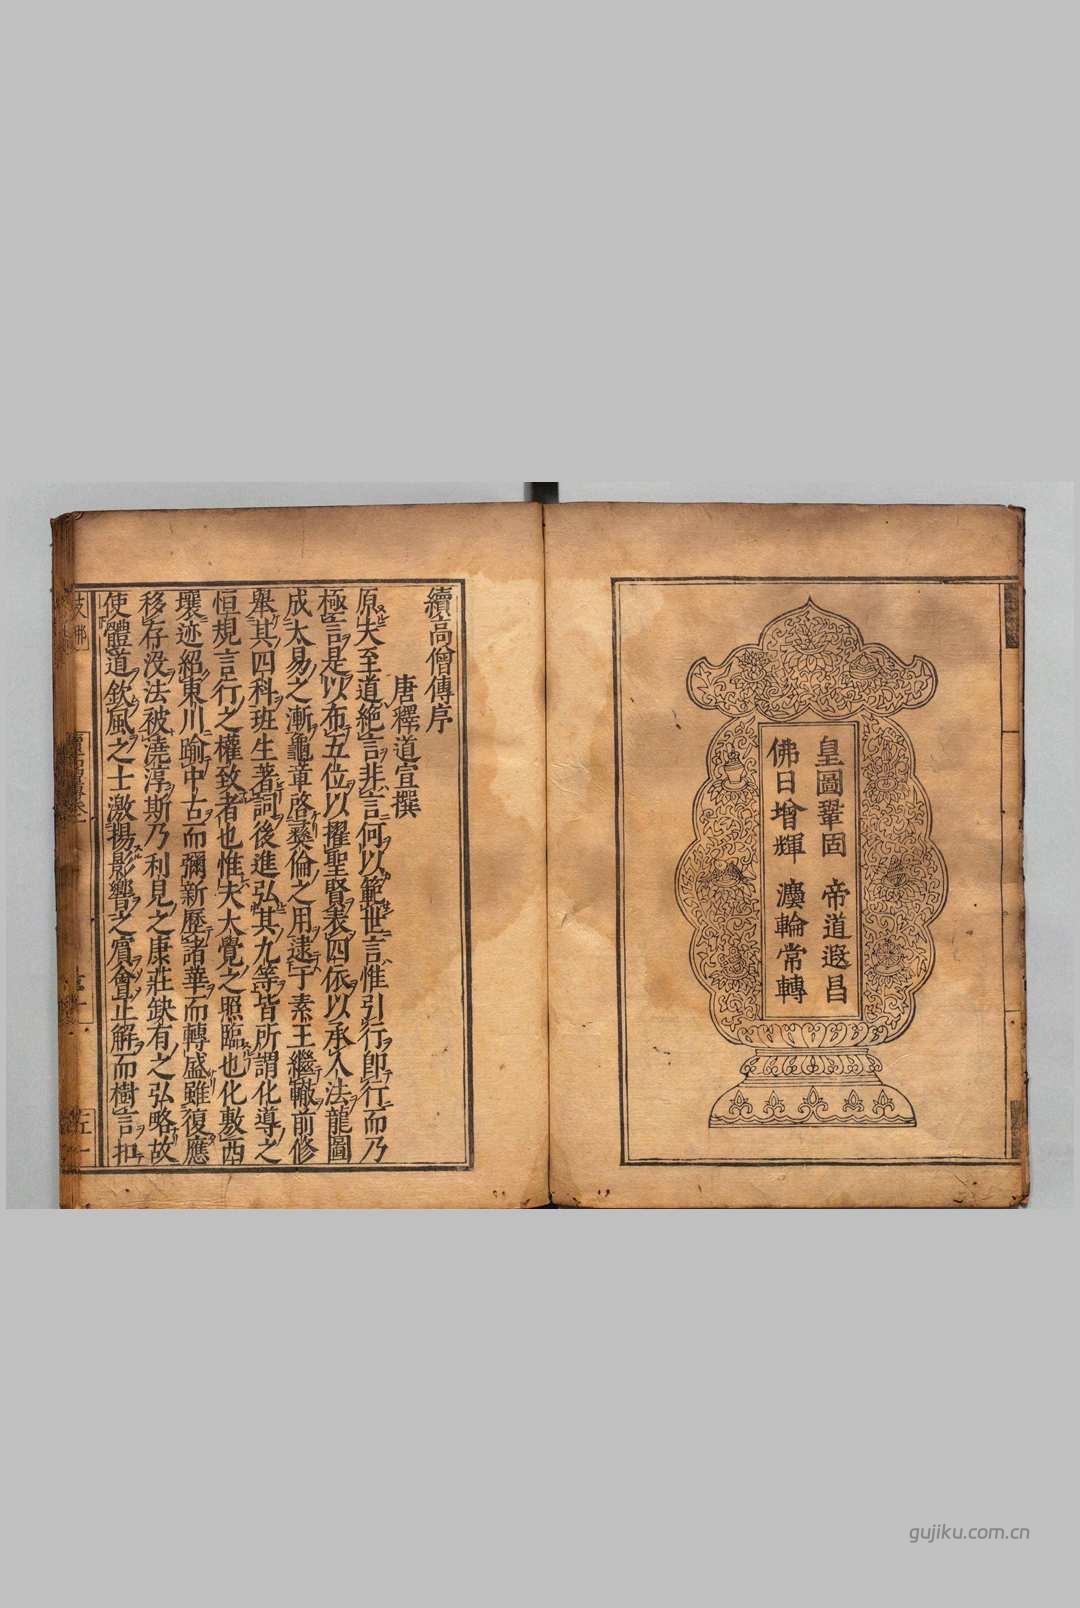 皇圖鞏固 帝道遐昌
佛日增輝 灋輪常轉
續高僧傳序
唐釋道宣撰
原夫至道絕言非言何以範世言惟引行即行而乃
極言是以布五位以擢聖賢表四依以承人法龍圖
成太易之漸龜章啓彝倫之用逮于素王繼轍前修
舉其四科班生著詞後進弘其九等皆所謂化導之
恒規言行之權致者也惟夫大覺之照臨也化敷西
壤迹紹東川踰中古而彌新歷諸華而轉盛雖復應
移存沒法被澆淳斯乃利見之康莊缺有之弘略故
使體道欽風之士激揚影響之賓會正解而樹言扣
gujiku.com.cn